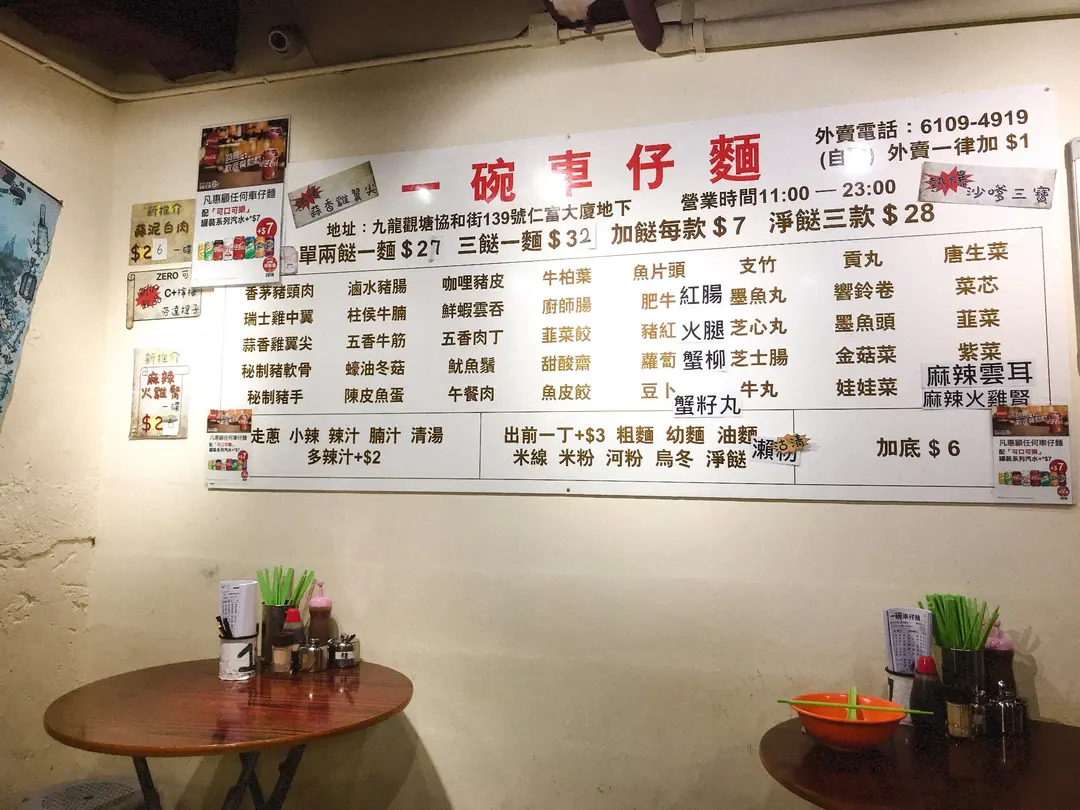 一碗車仔麵
外賣電話：6109-4919
外賣一律加 $1
營業時間11:00 — 23:00
地址：九龍觀塘協和街139號仁富大廈地下
單兩餸一麵 $27 三餸一麵 $32 加餸每款 $7 淨餸三款 $28
蒜香雞翼尖
沙嗲三寶
香茅豬頸肉 滷水豬腸 咖哩豬皮 牛柏葉 魚片頭 支竹 貢丸 唐生菜
瑞士雞中翼 柱侯牛腩 鮮蝦雲吞 廚師腸 肥牛 紅腸 墨魚丸 響鈴卷 菜芯
蒜香雞翼尖 五香牛筋 五香肉丁 韮菜餃 豬紅 火腿 芝心丸 墨魚頭 韮菜
秘制豬軟骨 蠔油冬菇 魷魚鬚 甜酸齋 蘿蔔 蟹柳 芝士腸 金菇菜 紫菜
秘制豬手 陳皮魚蛋 午餐肉 魚皮餃 豆卜 牛丸 娃娃菜 麻辣雲耳
蟹籽丸
麻辣火雞腎
走蔥 小辣 辣汁 腩汁 清湯
多辣汁+$2
出前一丁+$3 粗麵 幼麵 油麵
米線 米粉 河粉 烏冬 淨餸
瀨粉
加底 $6
凡惠顧任何車仔麵
配「可口可樂」
罐裝系列汽水+$7
+$7
新推介
蒜泥白肉
一碟
ZERO
C+檸檬
新推介
麻辣
火雞腎
一碟
凡惠顧任何車仔麵
配「可口可樂」
罐裝系列汽水+$7
凡惠顧任何車仔麵
配「可口可樂」
罐裝系列汽水+$7
1
一碗車仔麵